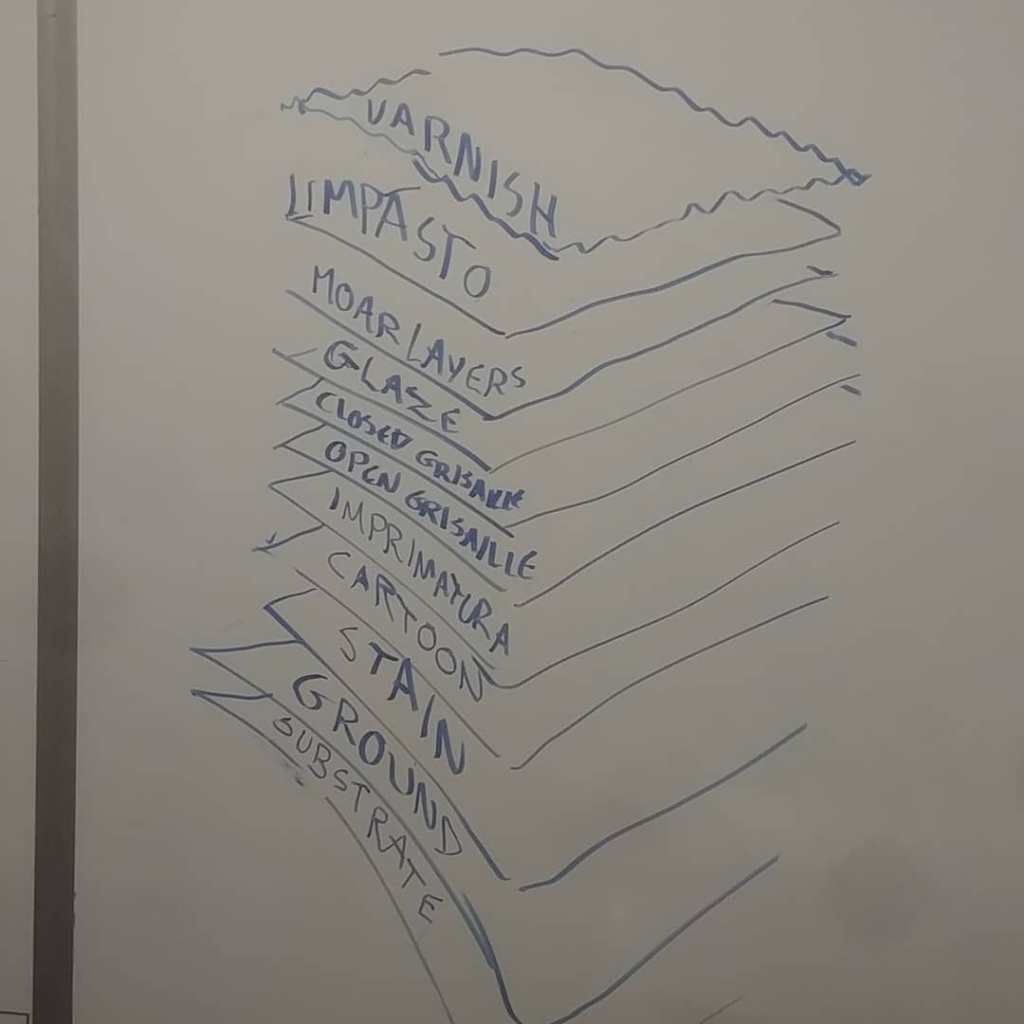 VARNISH
IMPASTO
MOAR LAYERS
GLAZE
CLOSED GRISAILLE
OPEN GRISAILLE
IMPRIMATURA
CARTOON
STAIN
GROUND
SUBSTRATE